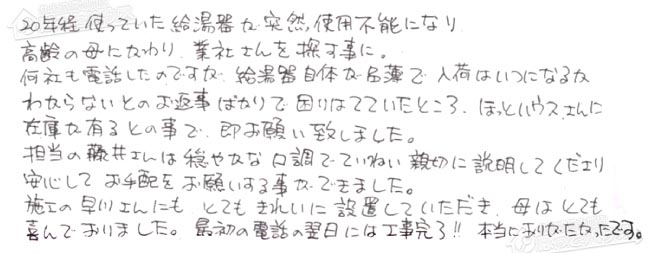 20年程使っていた給湯器が突然、使用不能になり
高齢の母にかわり、業社さんを探す事に。
何社も電話したのですが、給湯器自体が品薄で入荷はいつになるか
わからないとのお返事ばかりで困りはてていたところ、ほっとハウスさんに
在庫が有るとの事で、即お願い致しました。
担当の藤井さんは穏やかな口調でていねい親切に説明してくださり
安心してお手配をお願いする事ができました。
施工の早川さんにもとてもきれいに設置していただき、母はとても
喜んでおりました。最初の電話の翌日には工事完了!!本当にありがたかったです。